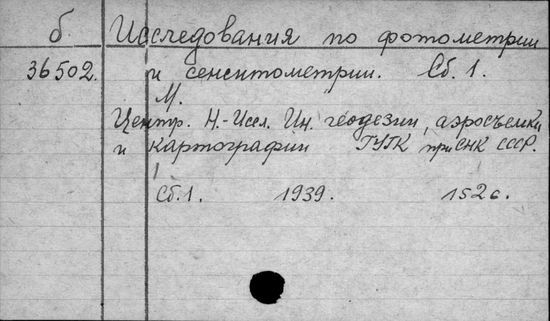 б Исследования по фотометрии
36502. и сенситометрии. Сб. 1.
М.
Центр. Н.-Иссл. Ин. геодезии, аэросъемки
и картографии ГУГК при СНК СССР.
Сб. 1. 1939. 152 с.